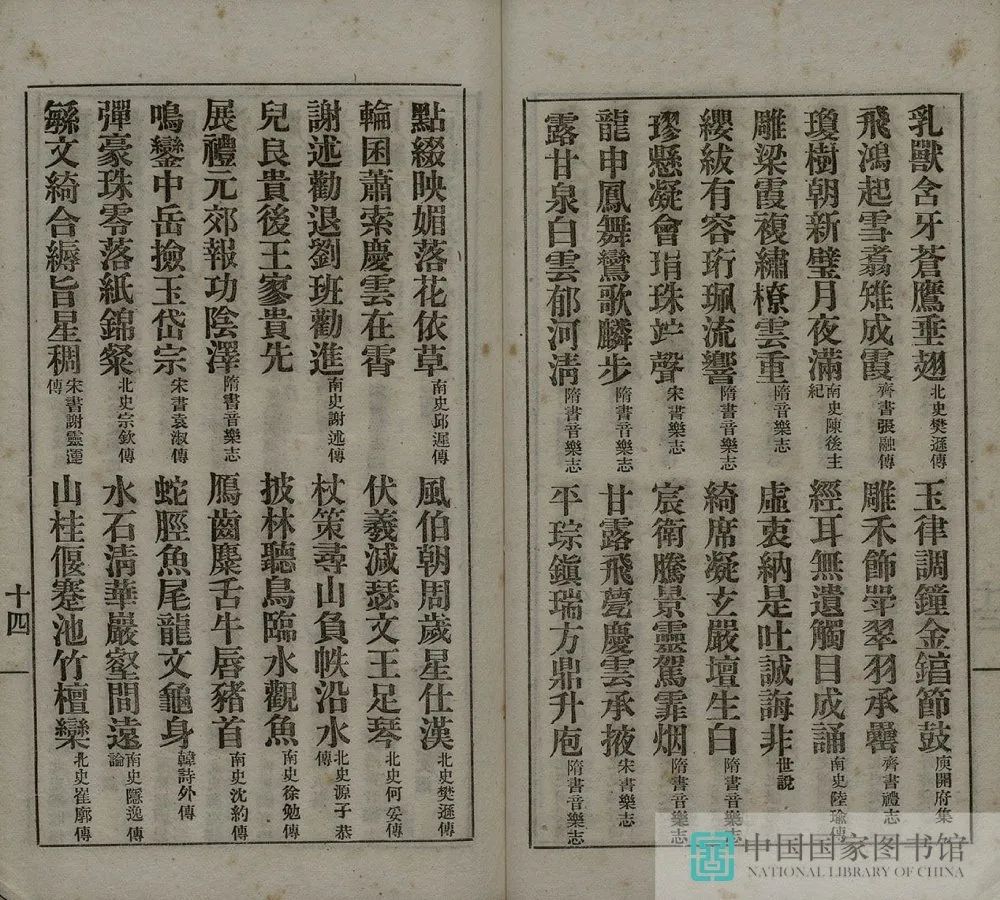 乳獸含牙蒼鷹垂翅 北史樊遜傳 玉律調鐘金錞節鼓 庾開府集
飛鴻起雪翥雉成霞 齊書張融傳 雕禾飾斝翠羽承罍 齊書禮志
瓊樹朝新璧月夜滿 南史陳後主紀 經耳無遺觸目成誦 南史陸瑜傳
雕梁霞複繡橑雲重 隋音樂志 虛衷納是吐誠誨非 世說
纓紱有容珩珮流響 隋書音樂志 綺席凝玄嚴壇生白 隋書音樂志
璆懸凝會珝珠竚聲 宋書樂志 宸衛騰景靈駕霏烟 隋書音樂志
龍申鳳舞鸞歌麟步 隋書音樂志 甘露飛甍慶雲承掖 宋書樂志
露甘泉白雲郁河清 隋書音樂志 平琮鎮瑞方鼎升庖 隋書音樂志
點綴映媚落花依草 南史邱遲傳 風伯朝周歲星仕漢 北史樊遜傳
輪囷蕭索慶雲在霄 伏羲減瑟文王足琴 北史何妥傳
謝述勸退劉班勸進 南史謝述傳 杖策尋山負帙沿水 北史源子恭傳
兒良貴後王寥貴先 披林聽鳥臨水觀魚 南史徐勉傳
展禮元郊報功陰澤 隋書音樂志 鴈齒麋舌牛唇豬首 南史沈約傳
鳴鑾中岳撿玉岱宗 宋書袁淑傳 蛇脛魚尾龍文龜身 韓詩外傳
彈豪珠零落紙錦粲 北史宗欽傳 水石清華巖壑閒遠 南史隱逸傳論
緐文綺合縟旨星稠 宋書謝靈運傳 山桂偃蹇池竹檀欒 北史崔廓傳
十四
中国国家图书馆
NATIONAL LIBRARY OF CHINA